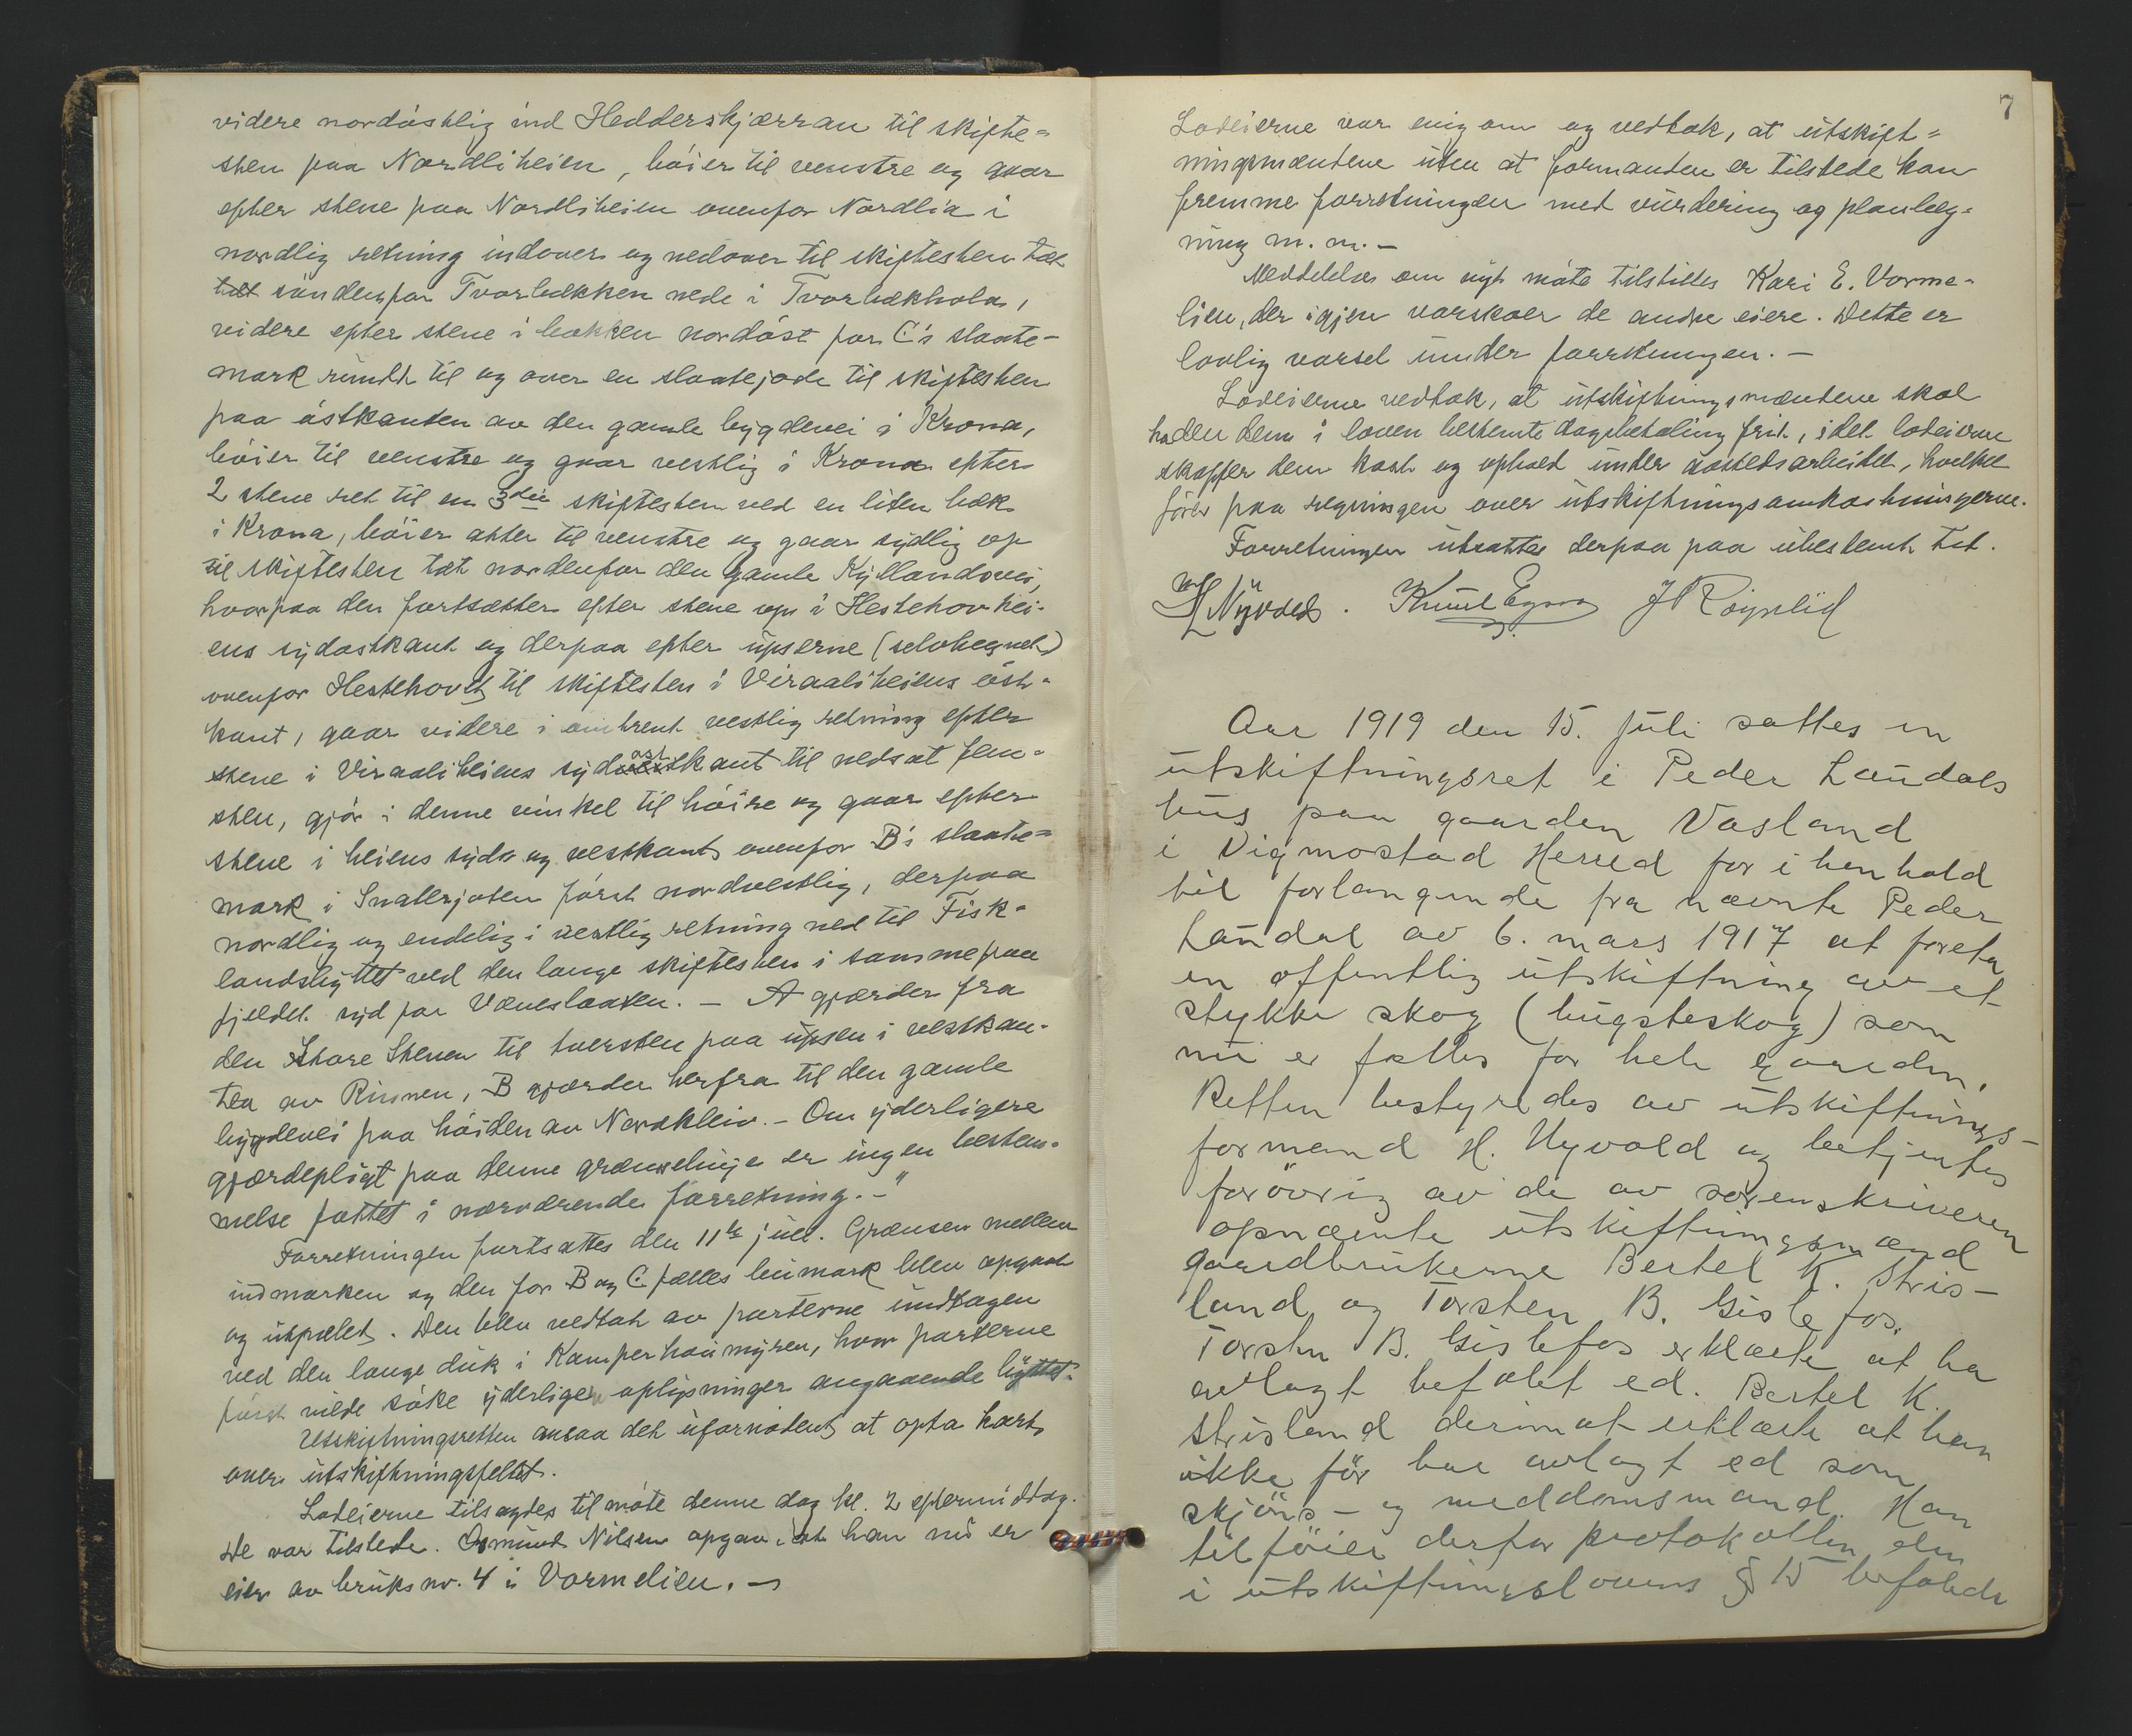 videre nordöstlig ind Hedderskjærran til skifte=
sten paa Nordliheien, böier til venstre og gaar
efter stene paa Nordliheien ovenfor Nordlia i
nordlig retning indover og nedover til skiftesten tæt
söndenfor Tvorbækken nede i Tvorbækhola,
videre efter stene i bakken nordöst for C's slaate-
mark rundt til og over en slaatejode til skiftesten
paa östkanten av den gamle bygdevei i Krona,
böier til venstre og gaar vestlig i Krona efter
2 stene ret til en 3die skiftesten ved en liten bæk
i Krona, böier atter til venstre og gaar sydlig op
til skiftesten tæt nordenfor den gamle Kyllandsvei,
hvorpaa den fortsætter efter stene op i Hestehovhei-
ens sydostkant og derpaa efter upserne (selvhegnet)
ovenfor Hestehovet til skiftesten i Viraaliheiens öst-
kant, gaar videre i omtrent vestlig retning efter
stene i Viraaliheiens sydostkant til nedsat jen-
sten, gjör i denne vinkel til höire og gaar efter
stene i heiens syd og vestkant ovenfor B's slaate=
mark i Snallerjoten först nordvestlig, derpaa
nordlig og endelig i vestlig retning ned til Fisk-
landsbyttet ved den lange skiftesten i samme paa
fjeldet syd for Væneslaaten. - A gjærder fra
den Store Stenen til tversten paa upsen i vestkan-
ten av Rinnen, B gjærder herfra til den gamle
bygdevei paa höiden av Norskleiv. - Om yderligere
gjærdepligt paa denne grænselinje er ingen bestem-
melse fattet i nærværende forretning. -"
Forretningen fortsattes den 11te juli. Grænsen mellem
indmarken og den for B og C fælles heimark blev opgaat
og utpælet. Den blev vedtat av parterne undtagen
ved den lange duk i Kamperhaumyren, hvor parterne
först vilde söke yderligere oplysninger angaaende byttet.
Utskiftningsretten ansaa det ufornödent at opta kart
over utskiftningsfeltet.
Lodeierne tilsagdes til möte denne dag kl. 2 eftermiddag.
De var tilstede. Osmund Nilsen opgav, at han nu er
eier av bruksnr. 4 i Vormelien. -
7
Lodeierne var enig om og vedtok, at utskift=
ningsmændene uten at formanden er tilstede kan
fremme forretningen med vurdering og planlæg=
ning m. m. -
Meddelelse om nyt möte tilstilles Kari E. Vorme-
lien, der igjen varskoer de andre eiere. Dette er
lovlig varsel under forretningen. -
Lodeierne vedtok, at utskiftningsmændene skal
ha den dem i loven bestemte dagsbetaling frit, idet lodeierne
skaffer dem kost og ophold under aastedsarbeidet, hvilket
föres paa regningen over utskiftningsomkostningerne.
Forretningen utsattes derpaa paa ubestemt tid.
H Nyvold. Knut Egeraa J Röynlid
Aar 1919 den 15. juli sattes en
utskiftningsret i Peder Landals
hus paa gaarden Vasland
i Vigmostad Herred for i henhold
til forlangende fra nævnte Peder
Landal av 6. mars 1917 at foreta
en offentlig utskiftning av et
stykke skog (hugsteskog) som
nu er fælles for hele gaarden.
Retten bestyredes av utskiftnings-
formand H. Nyvold og betjentes
forövrig av de av sorenskriveren
opnævnte utskiftningsmænd
gaardbrukerne Bertel K. Stris-
land og Torsten B. Gislefos.
Torsten B. Gislefos erklærte at ha
avlagt befalet ed. Bertel K.
Strisland derimot erklærte at han
ikke för har avlagt ed som
skjöns- og meddomsmand. Han
tilföier derfor protokollen den
i utskiftningslovens § 15 befalede